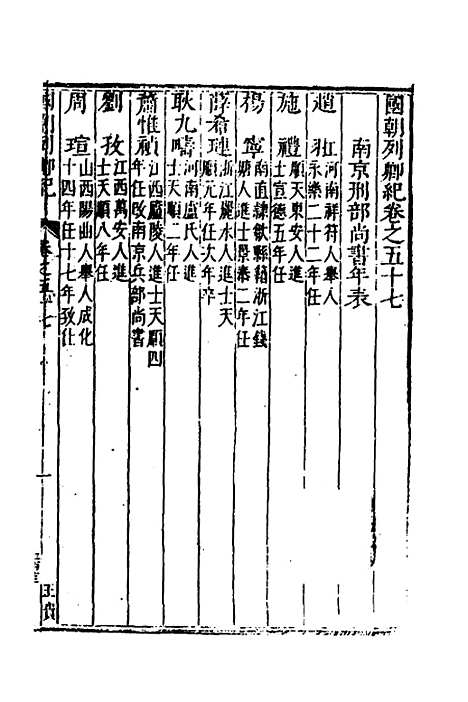 國朝列卿紀卷之五十七
南京刑部尚書年表
趙 羾河南祥符人舉人
永樂二十二年任
施 禮順天東安人進
士宣德五年任
楊 寧南直隸歙縣籍浙江錢
塘人進士景泰二年任
薛希璉浙江麗水人進士天
順元年任次年卒
耿九疇河南盧氏人進
士天順二年任
蕭惟禎江西廬陵人進士天順四
年任改南京兵部尚書
劉 孜江西萬安人進
士天順八年任
周 瑄山西陽曲人舉人成化
十四年任十七年致仕
國朝列卿紀 卷之五十七 一